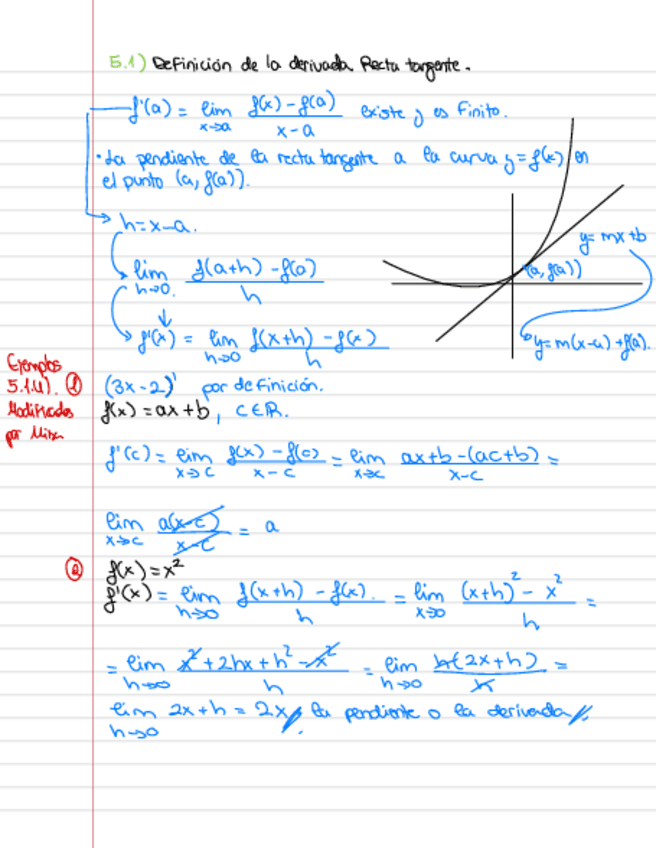 5.1) Definición de la derivada Recta tangente.
f'(a) = lim x→a (f(x) - f(a))/(x - a) existe y es finito.
• La pendiente de la recta tangente a la curva y = f(x) en
el punto (a, f(a)).
h = x - a.
y = mx + b
lim h→0. (f(a+h) - f(a))/h
(a, f(a))
f'(x) = lim h→0 (f(x+h) - f(x))/h
y = m(x-a) + f(a).
Ejemplos
5.1.4). ① (3x - 2)' por definición.
Modificados f(x) = ax + b, c∈ℝ.
por
f'(c) = lim x→c (f(x) - f(c))/(x - c) = lim x→c (ax + b - (ac + b))/(x - c) =
lim x→c a(x - c)/(x - c) = a
② f(x) = x²
f'(x) = lim h→0 (f(x+h) - f(x).)/h = lim x→0 ((x+h)² - x²)/h =
= lim h→0 (x² + 2hx + h² - x²)/h = lim h→0 h(2x + h)/h =
lim h→0 2x + h = 2x // la pendiente o la derivada //.